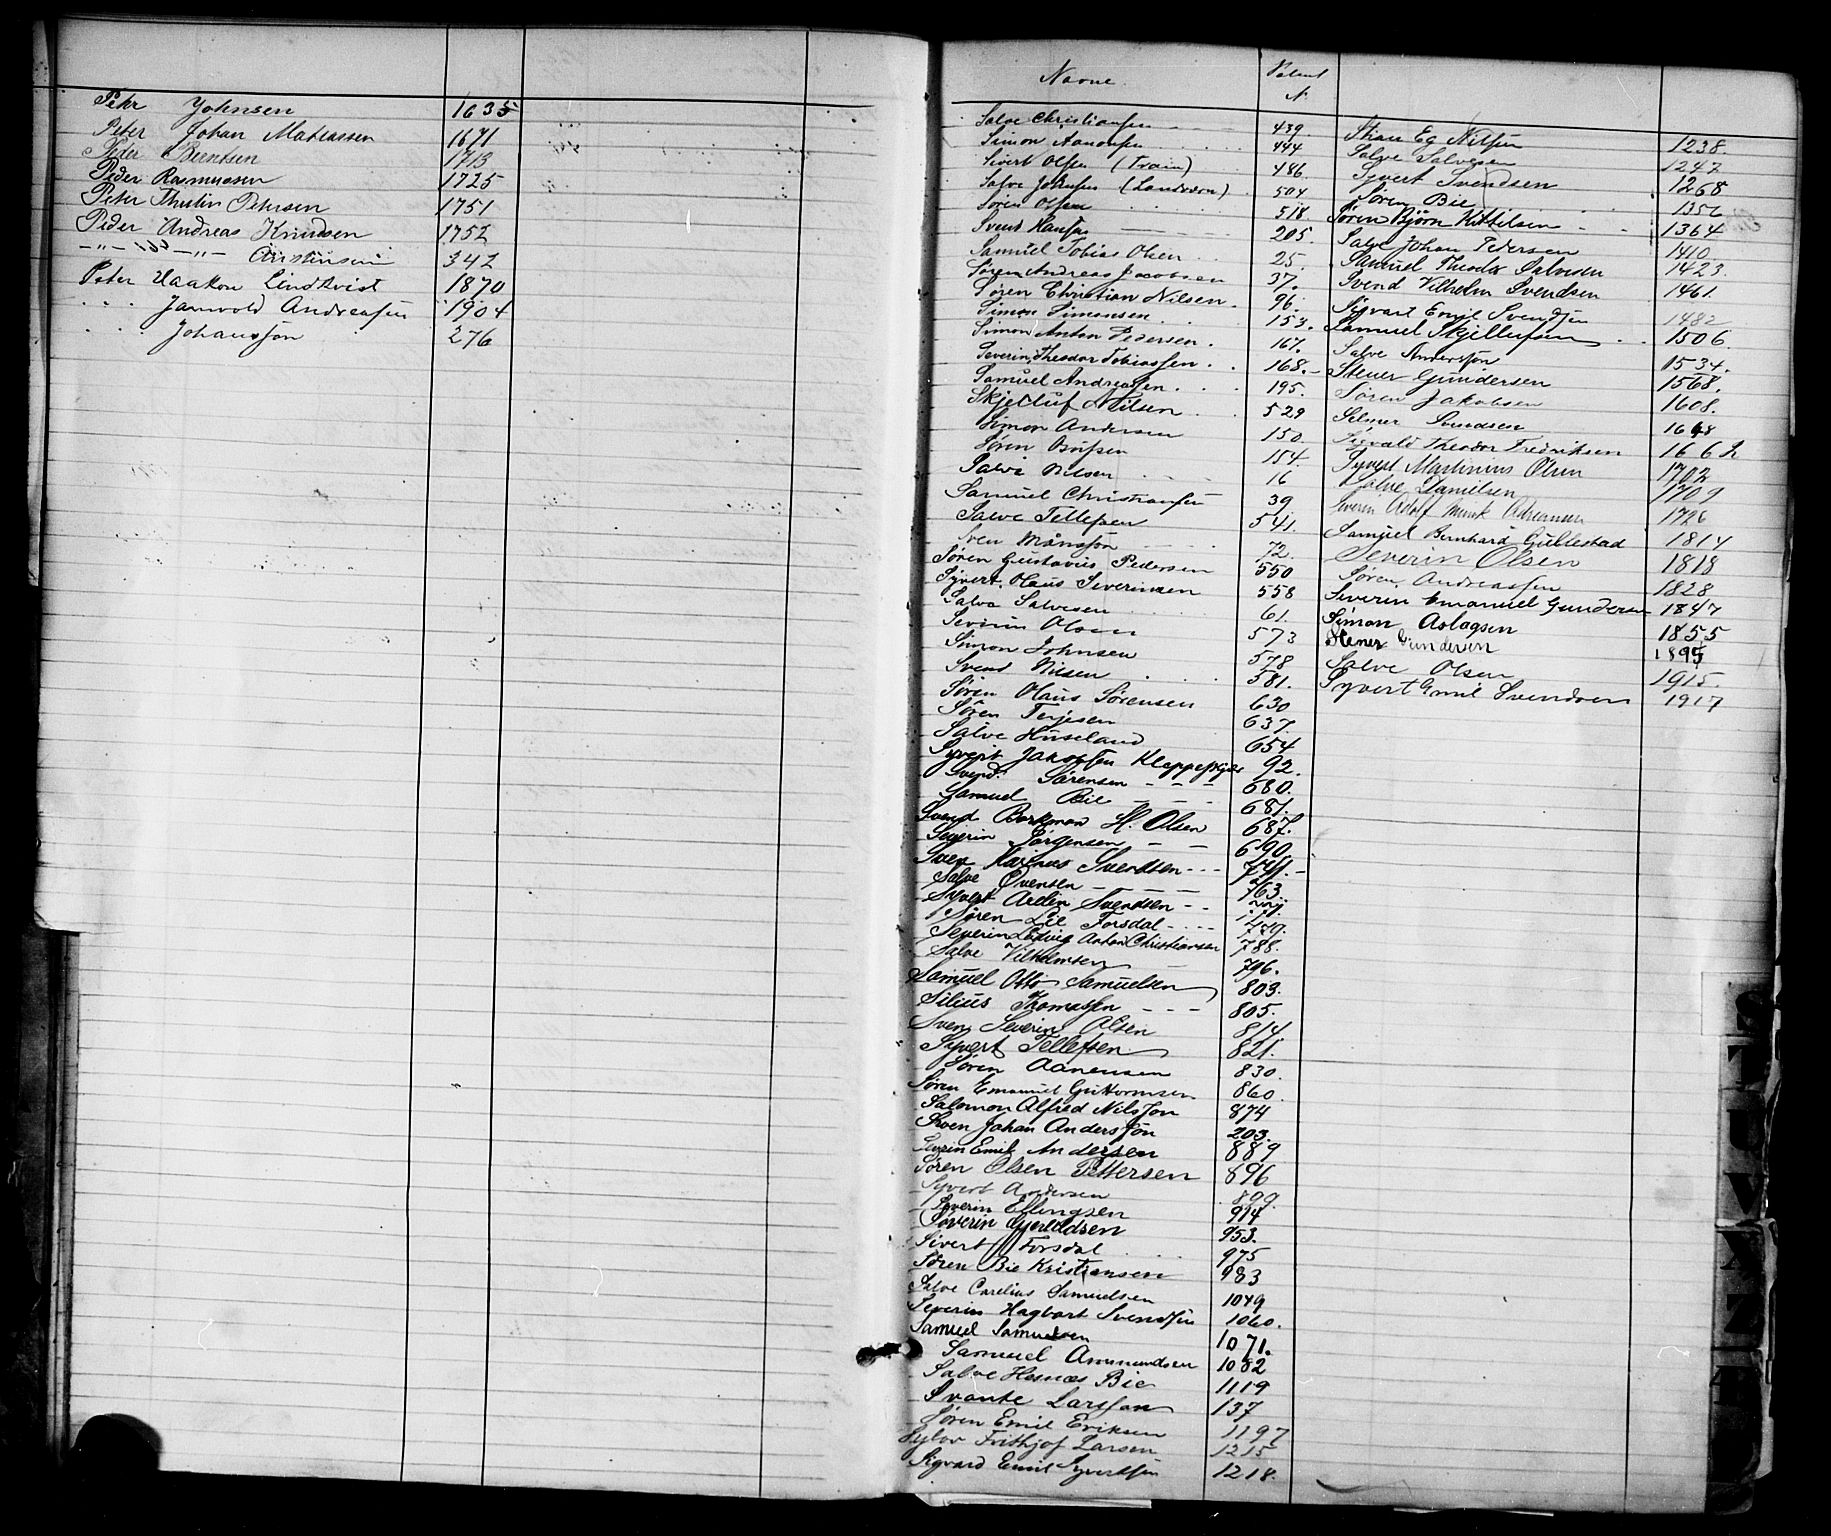 Peter Johnsen 1635
Peter Johan Mathiassen 1671
Peder Berntsen 1713
Peder Rasmussen 1725
Peter Thulin Petersen 1751
Peder Andreas Knudsen 1752
-"- -"- Christensen 342
Peter Haakon Lindkvist 1870
" " Jarnvold Andreassen 1904
" " Johansson 276
Navne. Patent N.
Salve Christiansen 439.
Simon Aanonsen 444
Sivert Olsen (Træin) 486.
Salve Johnsen 504
Søren Olsen 518
Svend Hansen 205.
Samuel Tobias Olsen 25.
Søren Andreas Jacobsen 37.
Søren Christian Nilsen 96.
Simon Simonsen 153.
Simon Anton Pedersen 167.
Severin Theodor Tobiassen 168.
Samuel Andreassen 195.
Skjelluf Nilsen 529
Simon Andersen 150.
Søren 154.
Salve Nilsen 16
Samuel Christiansen 39
Salve Tellefsen 541.
Sven Månsson 72.
Søren Gustavius Pedersen 550
Syvert Olaus Severinsen 558
Salve Salvesen 61.
Severin Olsen 573
Simon Johnsen 578
Svend Nilsen 581.
Søren Olaus Sørensen 630
Søren Terjesen 637.
Salve Huseland 654
Syvert Jakobsen 92.
Svend Sørensen 680.
Samuel Bie 681.
Svend Borkman H. Olsen 687.
Severin Jørgensen 690.
Sven Svendsen
Salve Øvensen 763.
Syvert Arelin Svendsen
Søren Lie Forsdal 779.
Severin Ludvig Anton Christiansen 788.
Salve Vilhelmsen 796.
Samuel Otto Samuelsen 803.
Silius Thomassen 805.
Sven Severin Olsen 814
Syvert Tellefsen 821.
Søren Aanensen 830.
Søren Emanuel Guttormsen 860.
Salomon Alfred Nilsson 874
Sven Johan Andersson 203.
Severin Emil Andersen 889
Søren Olsen Pettersen 896
Syvert Andersen 899.
Severin Ellingsen 914
Severin Gjeruldsen 953.
Sivert Forsdal 975
Søren Bie Kristiansen 983
Salve Carelius Samuelsen 1049
Severin Hagbart Svendsen 1060.
Samuel Samuelsen 1071.
Samuel Ammundsen 1082
Salve Hesnæs Bie 1119
Svante Larsson 137
Søren Emil Eriksen 1197
Sylov Frithjof Larsen 1215
Sigvard Emil Syvertsen 1218.
Stian Eg Nilsen 1238.
Salve Salvesen 1247
Syvert Svendsen 1268
Søren Bie 1356
Søren Bjørn Kittilsen 1364
Salve Johan Pedersen 1410.
Samuel Theodor Salvesen 1423.
Svend Vilhelm Svendsen 1461.
Sigvart Emil Svendsen 1482
Samuel Skjellufsen 1506
Salve Andersson 1534.
Stener Gundersen 1568.
Søren Jakobsen 1608.
Selmer Svendsen 1648
Sigvald Theodor Fredriksen 1662
Syvert Martinius Olsen 1702
Salve Danielsen 1709
Severin Adolf Munk Adriansen 1726
Samuel Bernhard Gullestad 1814
Severin Olsen 1818
Søren Andreassen 1828
Severin Emanuel Gundersen 1847
Simon Aslagsen 1855
Stener Gundersen 1895
Salve Olsen 1915.
Syvert Emil Svendsen 1917
S
T
U
V
X
Z
Æ